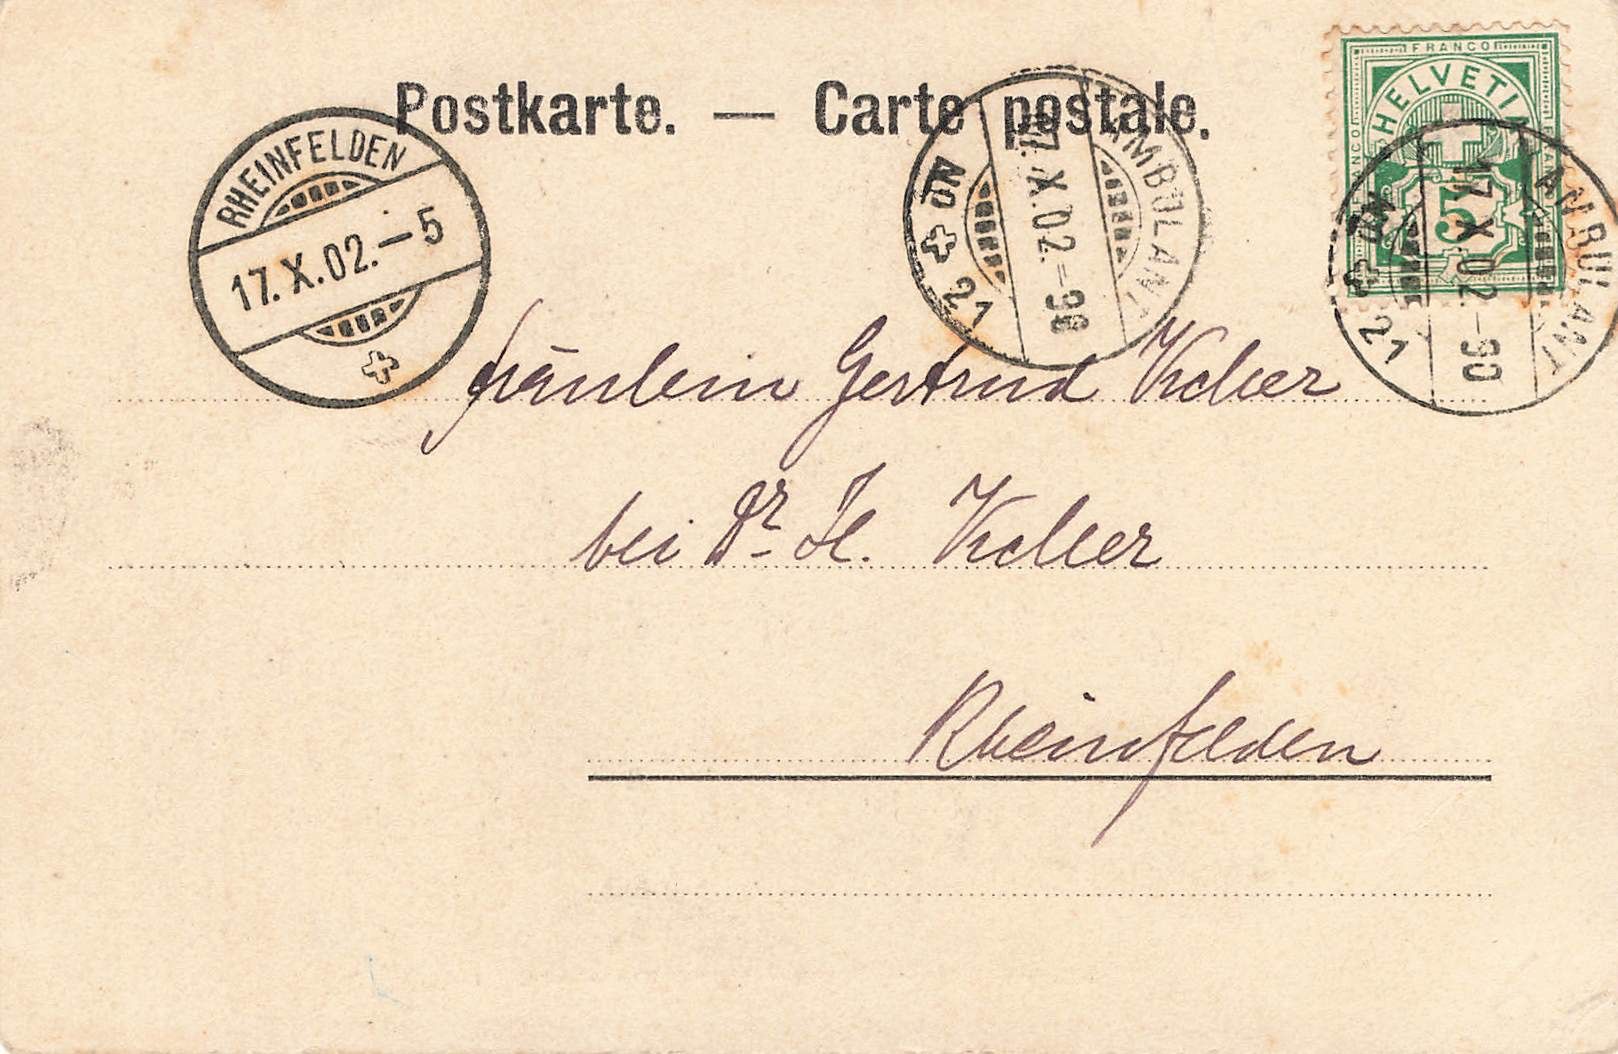 Postkarte. — Carte postale.
FRANCO
HELVETIA
5
RHEINFELDEN
17. X. 02. – 5
AMBULANT
17. X. 02. – 90
No 21
AMBULANT
17. X. 02. – 90
No 21
Fräulein Gertrud
bei Dr. H. Keller
Rheinfelden